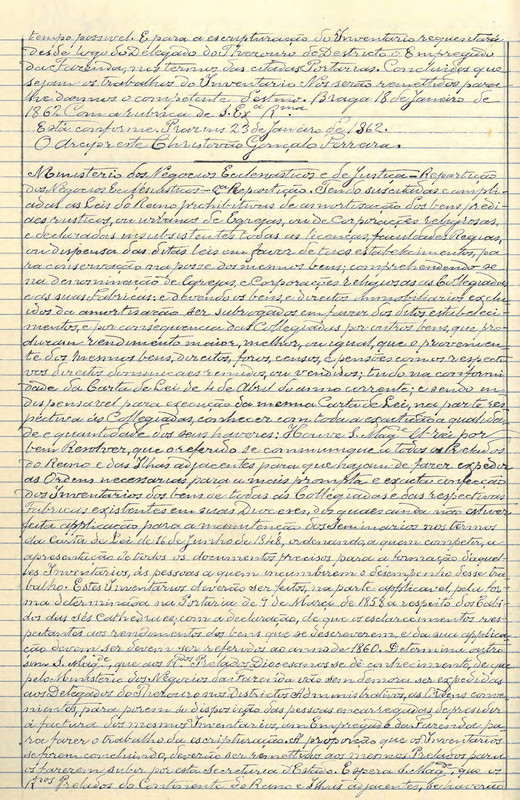 tempo possivel. E para a escripturação do Inventario requesitará
desde logo do Delegado do Thezouro do Destricto o Empregado
da Fazenda, nos termos das citadas Portarias. Concluidos que
sejam os trabalhos do Inventario Nos serão remettidos para
lhe darmos o competente destino. Braga 18 de Janeiro de
1862. Com a rubrica de S. Exª Rmª
Está conforme. 23 de Janeiro de 1862.
O Arcypreste Christovão Gonçalo Ferreira.
Ministerio dos Negocios Ecclesiasticos e de Justiça = Repartição
dos Negocios Ecclesiasticos = Repartição. Tendo suscitadas e ampli-
adas as Leis do Reino prohibitivas da amortisação dos bens predi-
aes rusticos, ou urbanos de Egrejas, ou de Corporações religiosas,
e declaradas insubsistentes todas as licenças, faculdades Regias,
ou dispensa das ditas leis em favor de taes estabelecimentos, pa-
ra conservação na posse dos mesmos bens; comprehendendo-se
na denominação de Egrejas, e Corporações religiosas as Collegiadas
e as suas Fabricas; e devendo os bens, e direitos immobiliarios exclu-
idos da amortisação ser subrogados em favor dos ditos estabeleci-
mentos, e por consequencia das Collegiadas por outros bens, que pro-
duzam rendimento maior, melhor, ou igual, que o provenien-
te dos mesmos bens, direitos, foros, censos, e pensões com os respecti-
vos directos dominicaes remidos, ou vendidos; tudo na conformi-
dade da Carta de Lei de 4 de Abril do anno corrente; e sendo in-
dispensavel para execução da mesma Carta de Lei, na parte res-
pectiva ás Collegiadas, conhecer com toda a exactidão a qualida-
de e quantidade dos seus haveres: Houve S. Magde El-Rei por
bem Resolver, que o referido se communique a todos os Prelados
do Reino e das Ilhas adjacentes para que hajam de fazer expedir
as Ordens necessarias para a mais prompta, e exacta confecção
dos Inventarios dos bens de todas as Collegiadas e das respectivas
Fabricas existentes em suas Dioceses, dos quaes ainda não estiver
feita applicação para a manutenção dos Seminarios nos termos
da Carta de Lei de 16 de Junho de 1848, ordenando, a quem competir, a
apresentação de todos os documentos precisos para a formação d'aquel-
les Inventarios, ás pessoas a quem incumbirem o desempenho desse tra-
balho. Estes Inventarios deverão ser feitos, na parte applicavel, pela for-
ma determinada na Portaria de 9 de Março de 1858 a respeito dos Cabi-
dos das Sés Cathedraes; com a declaração, de que os esclarecimentos res-
peitantes aos rendimentos dos bens que se descreverem, e da sua applica-
ção devem ser devem ser referidos ao anno de 1860. Determina outro
sim S. Magde, que aos Rmos Prelados Diocesanos se dê conhecimento, de que
pelo Ministerio dos Negocios da Fazenda vão sem demora ser expedidas
aos Delegados do Thezouro nos Districtos Administrativos, as Ordens conve-
nientes, para porem á disposição das pessoas encarregadas de presidir
á factura dos mesmos Inventarios, um Empregado da Fazenda pa-
ra fazer o trabalho da escripturação. A proporção que os Inventarios
se forem concluindo, deverão ser remettidos aos mesmos Prelados para
os fazerem subir por esta Secretaria d'Estado. Espera S. Magde, que os
Rmos Prelados do Continente do Reino e Ilhas adjacentes, se haverão